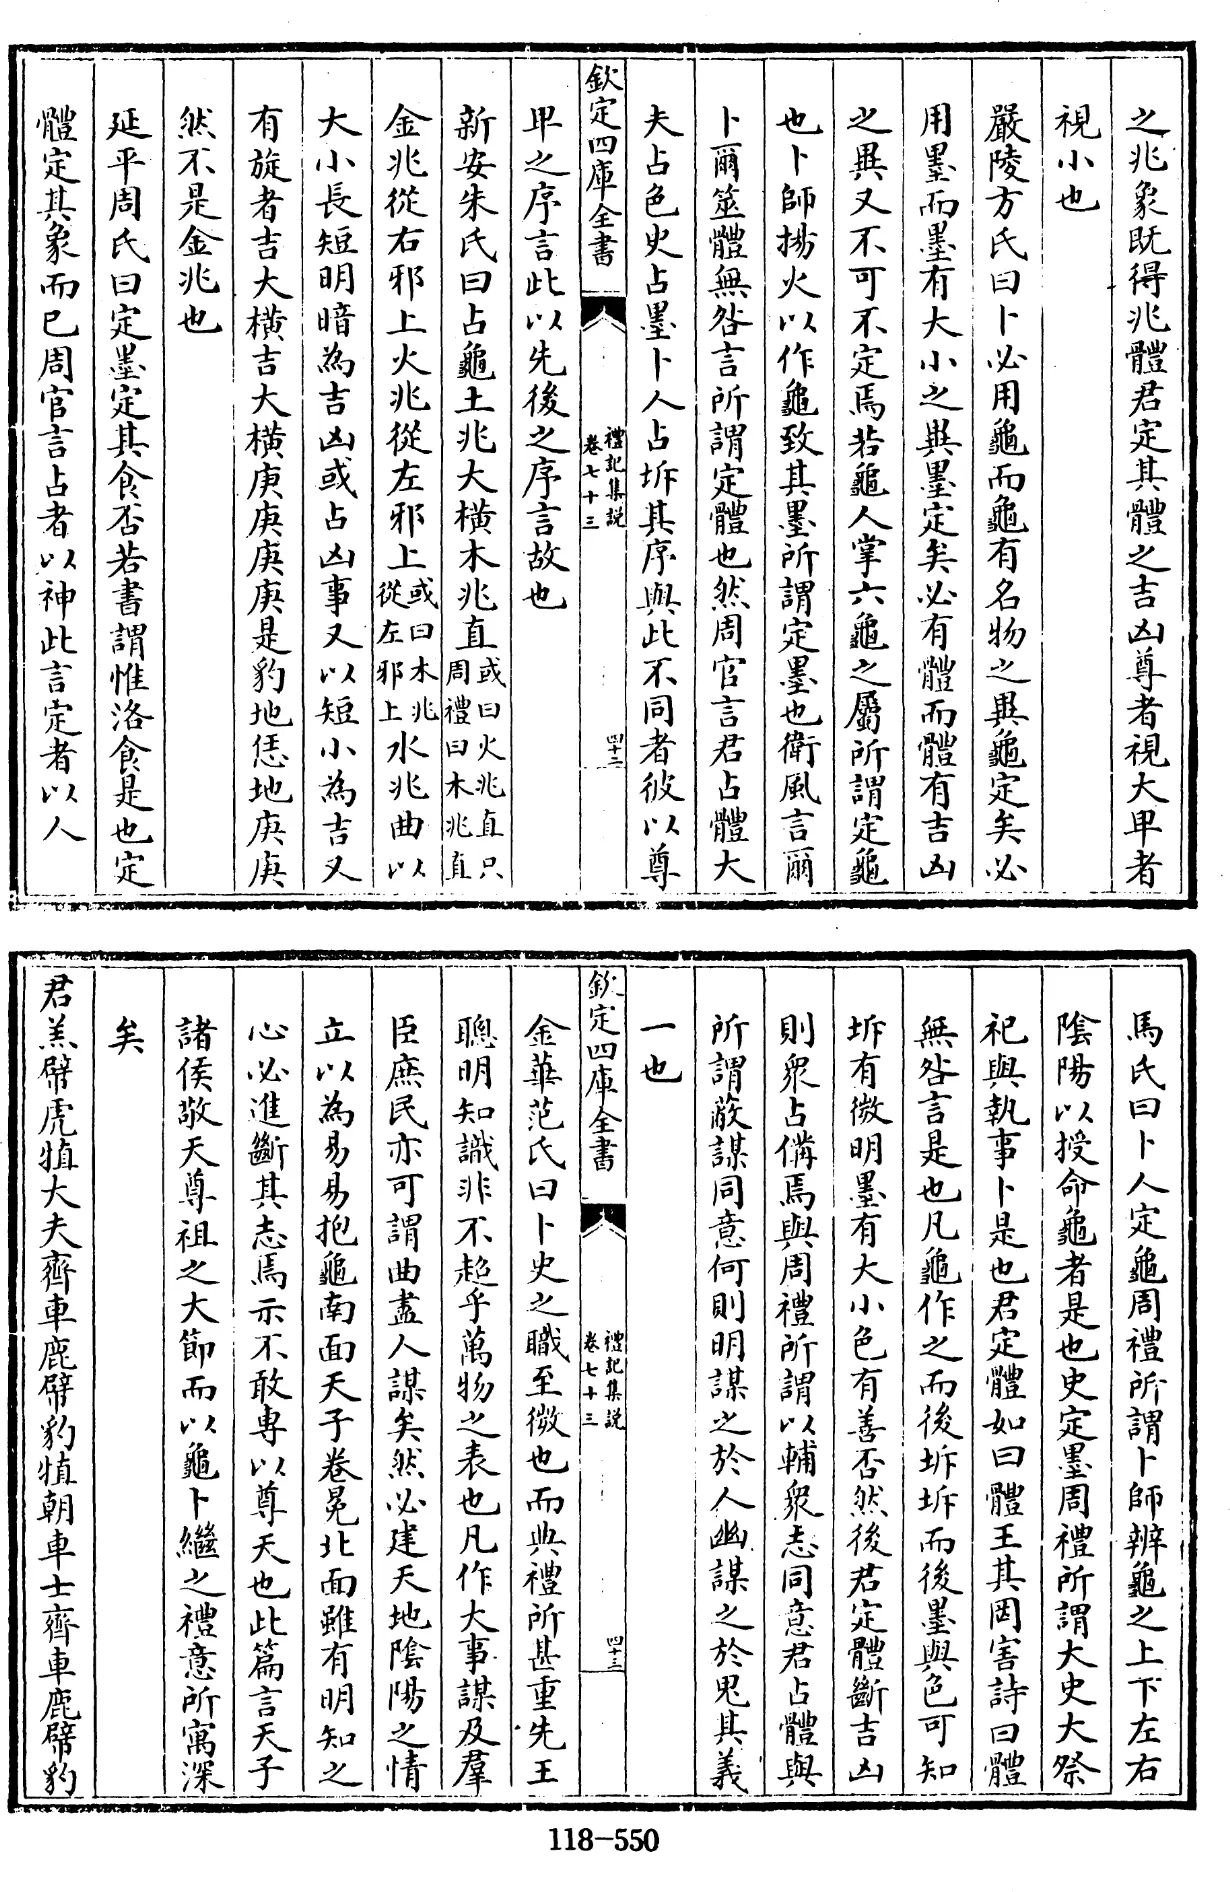 之兆象既得兆體君定其體之吉凶尊者視大卑者
視小也
嚴陵方氏曰卜必用龜而龜有名物之異龜定矣必
用墨而墨有大小之異墨定矣必有體而體有吉凶
之異又不可不定焉若龜人掌六龜之屬所謂定龜
也卜師揚火以作龜致其墨所謂定墨也衛風言爾
卜爾筮體無咎言所謂定體也然周官言君占體大
夫占色史占墨卜人占坼其序與此不同者彼以尊
欽定四庫全書
禮記集説
卷七十三
四十二
卑之序言此以先後之序言故也
新安朱氏曰占龜土兆大横木兆直或曰火兆直只周禮曰木兆直
金兆從右邪上火兆從左邪上或曰木兆從左邪上水兆曲以
大小長短明暗為吉凶或占凶事又以短小為吉又
有旋者吉大横吉大横庚庚庚庚是豹地恁地庚庚
然不是金兆也
延平周氏曰定墨定其食否若書謂惟洛食是也定
體定其象而已周官言占者以神此言定者以人
馬氏曰卜人定龜周禮所謂卜師辨龜之上下左右
陰陽以授命龜者是也史定墨周禮所謂大史大祭
祀與執事卜是也君定體如曰體王其罔害詩曰體
無咎言是也凡龜作之而後坼坼而後墨與色可知
坼有微明墨有大小色有善否然後君定體斷吉凶
則衆占備焉與周禮所謂以輔衆志同意君占體與
所謂蔽謀同意何則明謀之於人幽謀之於鬼其義
一也
欽定四庫全書
禮記集説
卷七十三
四十三
金華范氏曰卜史之職至微也而典禮所甚重先王
聰明知識非不超乎萬物之表也凡作大事謀及羣
臣庶民亦可謂曲盡人謀矣然必建天地陰陽之情
立以為易易抱龜南面天子卷冕北面雖有明知之
心必進斷其志焉示不敢專以尊天也此篇言天子
諸侯敬天尊祖之大節而以龜卜繼之禮意所寓深
矣
君羔幦虎犆大夫齊車鹿幦豹犆朝車士齊車鹿幦豹
118-550